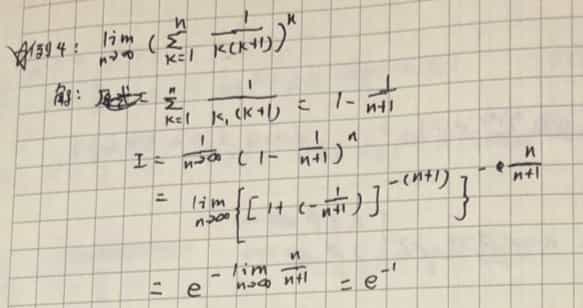 例394: lim n→∞ (∑ k=1 n 1/k(k+1))^n
解: ∑ k=1 n 1/k,(k+1) = 1 - 1/n+1
I = 1/n→∞ (1 - 1/n+1)^n
= lim n→∞ {[1+(-1/n+1)]^-(n+1)}^- n/n+1
= e^- lim n→∞ n/n+1 = e^-1